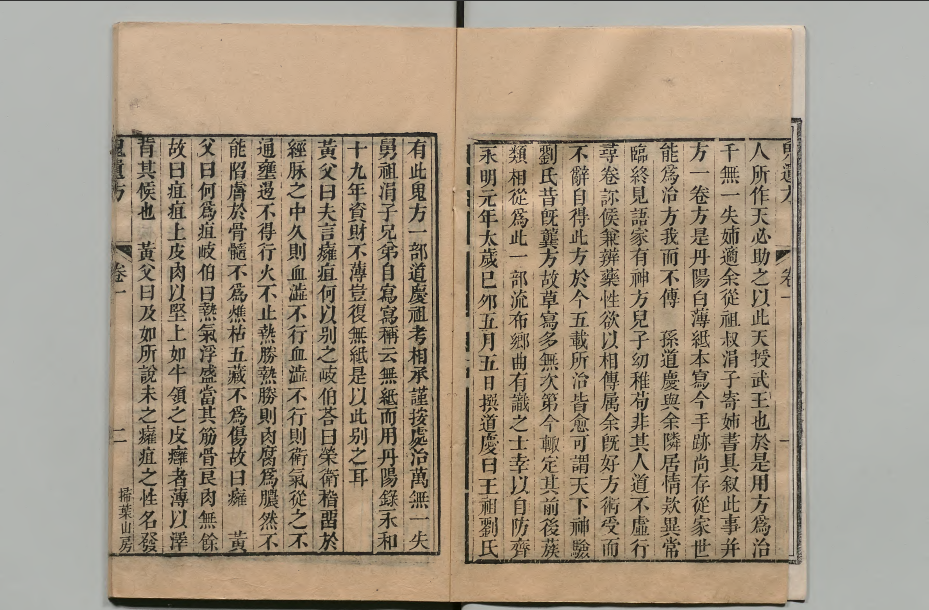 人所作天必助之以此天授武王也於是用方爲治
千無一失姉適余從祖叔涓子寄姉書具叙此事并
方一卷方是丹陽白薄紙本寫今手跡尚存從家世
能爲治方我而不傳　孫道慶與余隣居情欵異常
臨終見語家有神方兒子幼稚苟非其人道不虛行
尋卷診候兼辨藥性欲以相傳属余旣好方術受而
不辭自得此方於今五載所治皆愈可謂天下神驗
劉氏昔旣龔方故草寫多無次第今輙定其前後蔟
類相從爲此一部流布鄉曲有識之士幸以自防齊
永明元年太歲巳夘五月五日撰道慶曰王祖劉氏
鬼遺方
卷一
一
有此鬼方一部道慶祖考相承謹按處治萬無一失
舅祖涓子兄弟自寫寫稱云無紙而用丹陽錄永和
十九年資財不薄豈復無紙是以此别之耳
黃父曰夫言癰疽何以别之岐伯荅曰榮衛稽畱於
經脉之中久則血澁不行血澁不行則衛氣從之不
通壅遏不得行火不止熱勝熱勝則肉腐爲膿然不
能陷膚於骨髓不爲燋枯五藏不爲傷故曰癰　黃
父曰何爲疽岐伯曰熱氣浮盛當其筋骨良肉無餘
故曰疽疽上皮肉以堅上如牛領之皮癰者薄以澤
背其候也　黃父曰及如所說未之癰疽之性名發
鬼遺方
卷一
二
掃葉山房